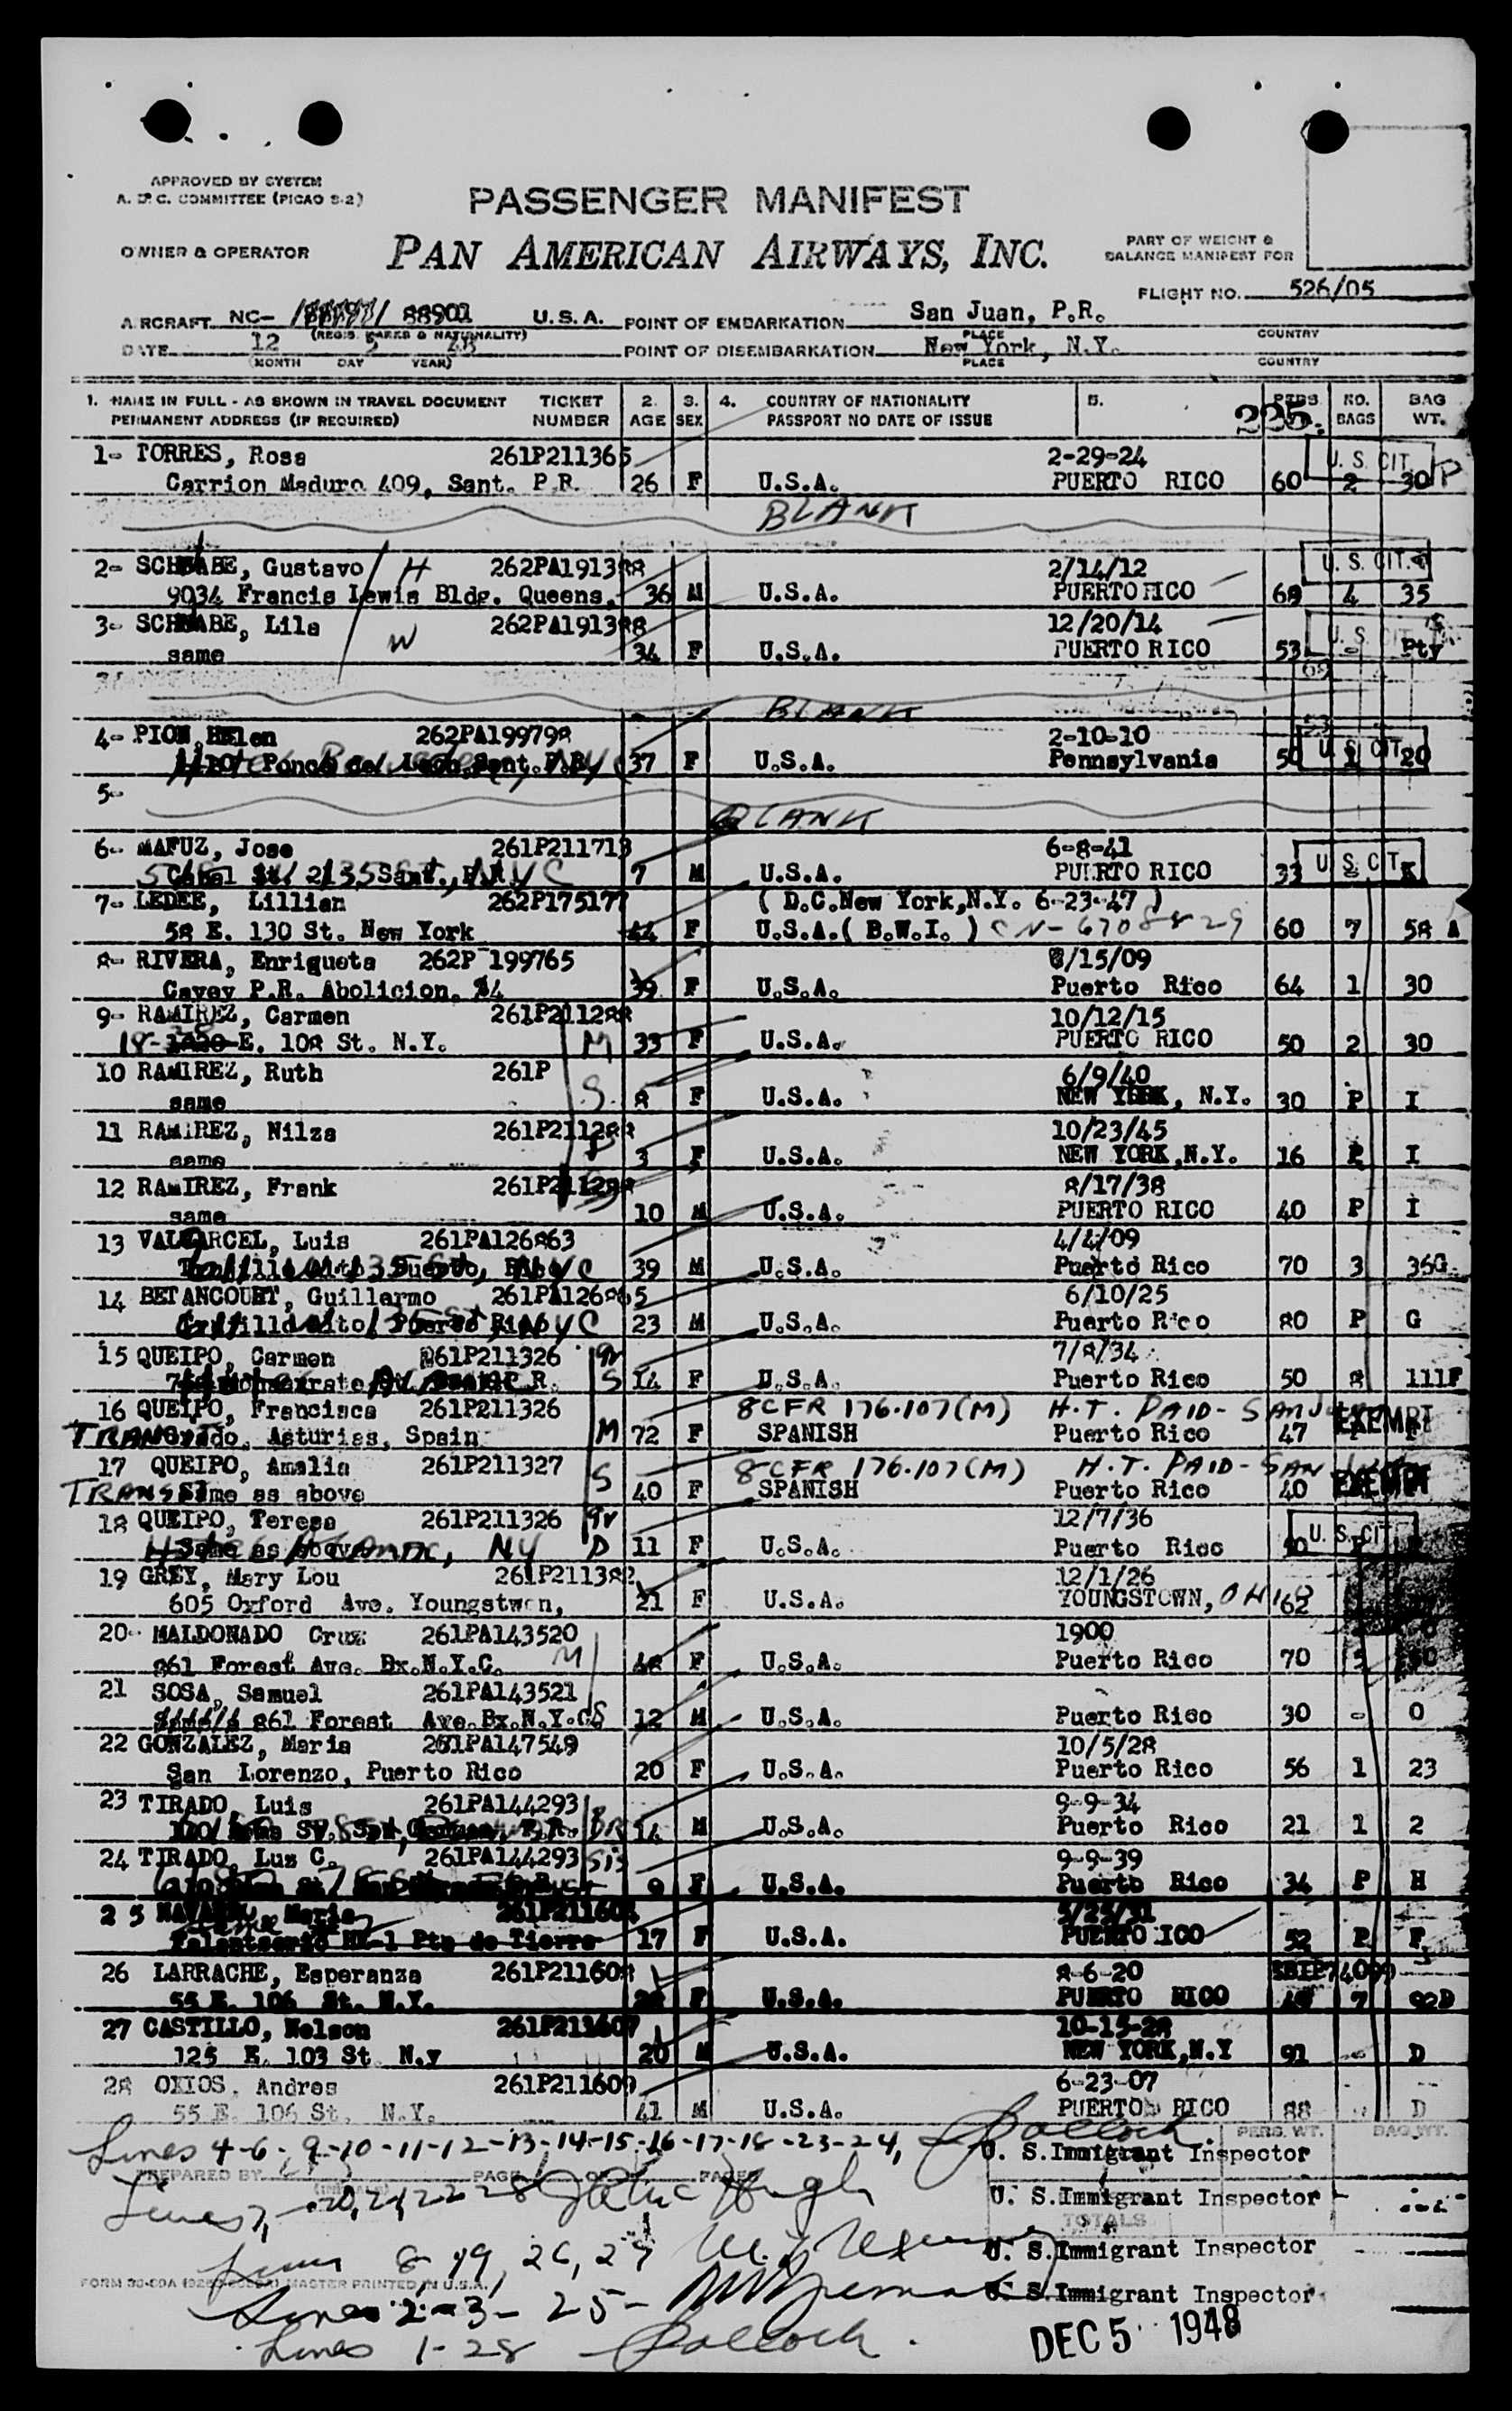 APPROVED BY SYSTEM
A. T. C. COMMITTEE (PICAO S-2)
PASSENGER MANIFEST
OWNER & OPERATOR
PAN AMERICAN AIRWAYS, INC.
PART OF WEIGHT &
BALANCE MANIFEST FOR
FLIGHT NO. 526/05
AIRCRAFT NC- 88901 U.S.A. POINT OF EMBARKATION San Juan, P.R.
(REGIS. MARKS & NATIONALITY) PLACE COUNTRY
DATE 12 5 48 POINT OF DISEMBARKATION New York, N.Y.
(MONTH DAY YEAR) PLACE COUNTRY
1. NAME IN FULL - AS SHOWN IN TRAVEL DOCUMENT TICKET 2. 3. 4. COUNTRY OF NATIONALITY 5. PERS. NO. BAG
PERMANENT ADDRESS (IF REQUIRED) NUMBER AGE SEX PASSPORT NO DATE OF ISSUE 225. BAGS WT.
1- TORRES, Rosa 261P211365 2-29-24 U. S. CIT.
Carrion Maduro 409, Sant. P.R. 26 F U.S.A. PUERTO RICO 60 2 30 P
BLANK
2- SCHWABE, Gustavo H 262PA191388 2/14/12 U. S. CIT.
9034 Francis Lewis Bldg. Queens, 36 M U.S.A. PUERTO RICO 68 4 35
3- SCHWABE, Lila W 262PA191388 12/20/14 U. S. CIT.
same 34 F U.S.A. PUERTO RICO 53 - Pty
BLANK
4- PION, Helen 262PA199798 2-10-10 U. S. CIT.
37 F U.S.A. Pennsylvania 50 1 20
5-
BLANK
6- MAFUZ, Jose 261P211713 6-8-41 U. S. CIT.
7 M U.S.A. PUERTO RICO 33 K
7- LEDEE, Lillian 262P175177 ( D.C.New York,N.Y. 6-23-47 )
58 E. 130 St. New York 44 F U.S.A.( B.W.I. ) CN-6708829 60 7 58 A
8- RIVERA, Enriqueta 262P 199765 /15/09
Cayey P.R. Abolicion, 34 39 F U.S.A. Puerto Rico 64 1 30
9- RAMIREZ, Carmen 261P211288 10/12/15
18- E. 108 St. N.Y. M 33 F U.S.A. PUERTO RICO 50 2 30
10 RAMIREZ, Ruth 261P 6/9/40
same S. 8 F U.S.A. NEW YORK, N.Y. 30 P I
11 RAMIREZ, Nilza 261P211288 10/23/45
same 3 F U.S.A. NEW YORK,N.Y. 16 P I
12 RAMIREZ, Frank 261P211288 8/17/38
same 10 M U.S.A. PUERTO RICO 40 P I
13 VALCARCEL, Luis 261PA126863 4/4/09
39 M U.S.A. Puerto Rico 70 3 36G
14 BETANCOURT, Guillermo 261PA126865 6/10/25
23 M U.S.A. Puerto Rico 80 P G
15 QUEIPO, Carmen 261P211326 Gr 7/8/34
S 14 F U.S.A. Puerto Rico 50 8 111F
16 QUEIPO, Francisca 261P211326 8CFR 176.107(M) H.T. PAID- SAN JUAN EXEMPT
TRANS Oviedo, Asturias, Spain M 72 F SPANISH Puerto Rico 47
17 QUEIPO, Amalia 261P211327 S 8CFR 176.107(M) H.T. PAID- SAN JUAN
TRANSIT Same as above 40 F SPANISH Puerto Rico 40 EXEMPT
18 QUEIPO, Teresa 261P211326 Gr 12/7/36 U. S. CIT.
D 11 F U.S.A. Puerto Rico
19 GREY, Mary Lou 261P211382 12/1/26
605 Oxford Ave. Youngstwon, 21 F U.S.A. YOUNGSTOWN, OHIO 62
20- MALDONADO Cruz 261PA143520 1900
861 Forest Ave. Bx.N.Y.C. M 48 F U.S.A. Puerto Rico 70
21 SOSA, Samuel 261PA143521
861 Forest Ave.Bx.N.Y.C. S 12 M U.S.A. Puerto Rico 30 - O
22 GONZALEZ, Maria 261PA147549 10/5/28
San Lorenzo, Puerto Rico 20 F U.S.A. Puerto Rico 56 1 23
23 TIRADO, Luis 261PA144293 9-9-34
BR 14 M U.S.A. Puerto Rico 21 1 2
24 TIRADO, Luz C. 261PA144293 Sis 9-9-39
9 F U.S.A. Puerto Rico 34 P H
25 Maria 5/25/31
Falantserio HH-1 Pta de Tierra 17 F U.S.A. 52 P F
26 LARRACHE, Esperanza 261P211608 8-6-20
55 E. 106 St. N.Y. 28 F U.S.A. PUERTO RICO 7 92D
27 CASTILLO, Nelson 261P211607 10-15-28
125 E. 103 St N.y 20 M U.S.A. NEW YORK,N.Y 91 - D
28 OXIOS, Andres 261P211609 6-23-07
55 E. 106 St. N.Y. 41 M U.S.A. PUERTO RICO 88 D
Lines 4-6-9-10-11-12-13-14-15-16-17-18-23-24, Pollock U. S.Immigrant Inspector PERS. WT. BAG WT.
PREPARED BY PAGE OF PAGES
Lines 7, 20, 21, 22 28 U. S.Immigrant Inspector
(INITIALS) TOTALS
Lines 8-19, 26, 27 U. S.Immigrant Inspector
MASTER PRINTED IN U.S.A.
Lines 2-3-25- U. S.Immigrant Inspector
Lines 1-28 Pollock.
DEC 5 1948